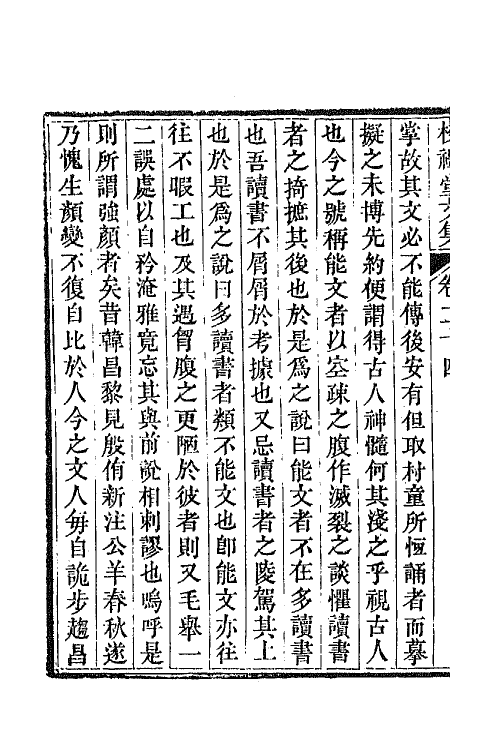 校禮堂文集 卷二十四
掌故其文必不能傳後安有但取村童所恆誦者而摹
擬之未博先約便謂得古人神髓何其淺之乎視古人
也今之號稱能文者以空疎之腹作滅裂之談懼讀書
者之掎摭其後也於是爲之說曰能文者不在多讀書
也吾讀書不屑屑於考據也又忌讀書者之陵駕其上
也於是爲之說曰多讀書者類不能文也卽能文亦往
往不暇工也及其遇胷腹之更陋於彼者則又毛舉一
二誤處以自矜淹雅竟忘其與前說相刺謬也嗚呼是
則所謂強顏者矣昔韓昌黎見殷侑新注公羊春秋遂
乃愧生顏變不復自比於人今之文人每自詭步趨昌